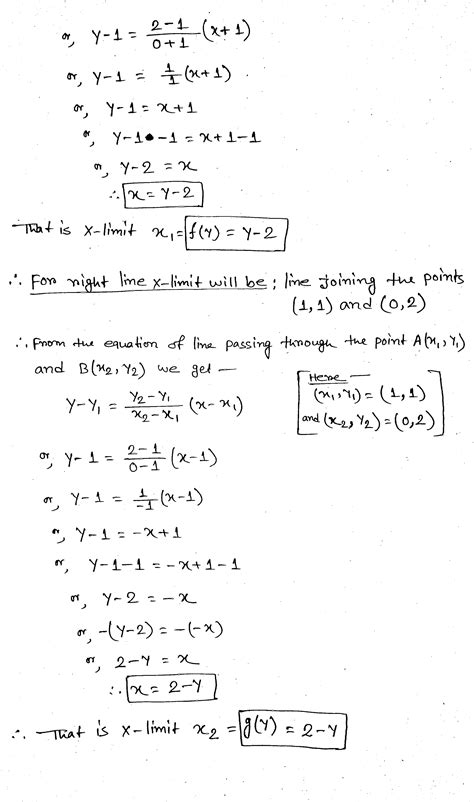 or, y-1 = \frac{2-1}{0+1}(x+1)
or, y-1 = \frac{1}{1}(x+1)
or, y-1 = x+1
or, y-1-1 = x+1-1
or, y-2 = x
∴ x = y-2
That is x-limit x₁ = f(y) = y-2
∴ For right line x-limit will be; line joining the points (1,1) and (0,2)
∴ From the equation of line passing through the point A(x₁, y₁)
and B(x₂, y₂) we get —
Here —
(x₁, y₁) = (1, 1)
and (x₂, y₂) = (0,2)
y-y₁ = \frac{y₂-y₁}{x₂-x₁}(x-x₁)
or, y-1 = \frac{2-1}{0-1}(x-1)
or, y-1 = \frac{1}{-1}(x-1)
or, y-1 = -x+1
or, y-1-1 = -x+1-1
or, y-2 = -x
or, -(y-2) = -(-x)
or, 2-y = x
∴ x = 2-y
∴ That is x-limit x₂ = g(y) = 2-y